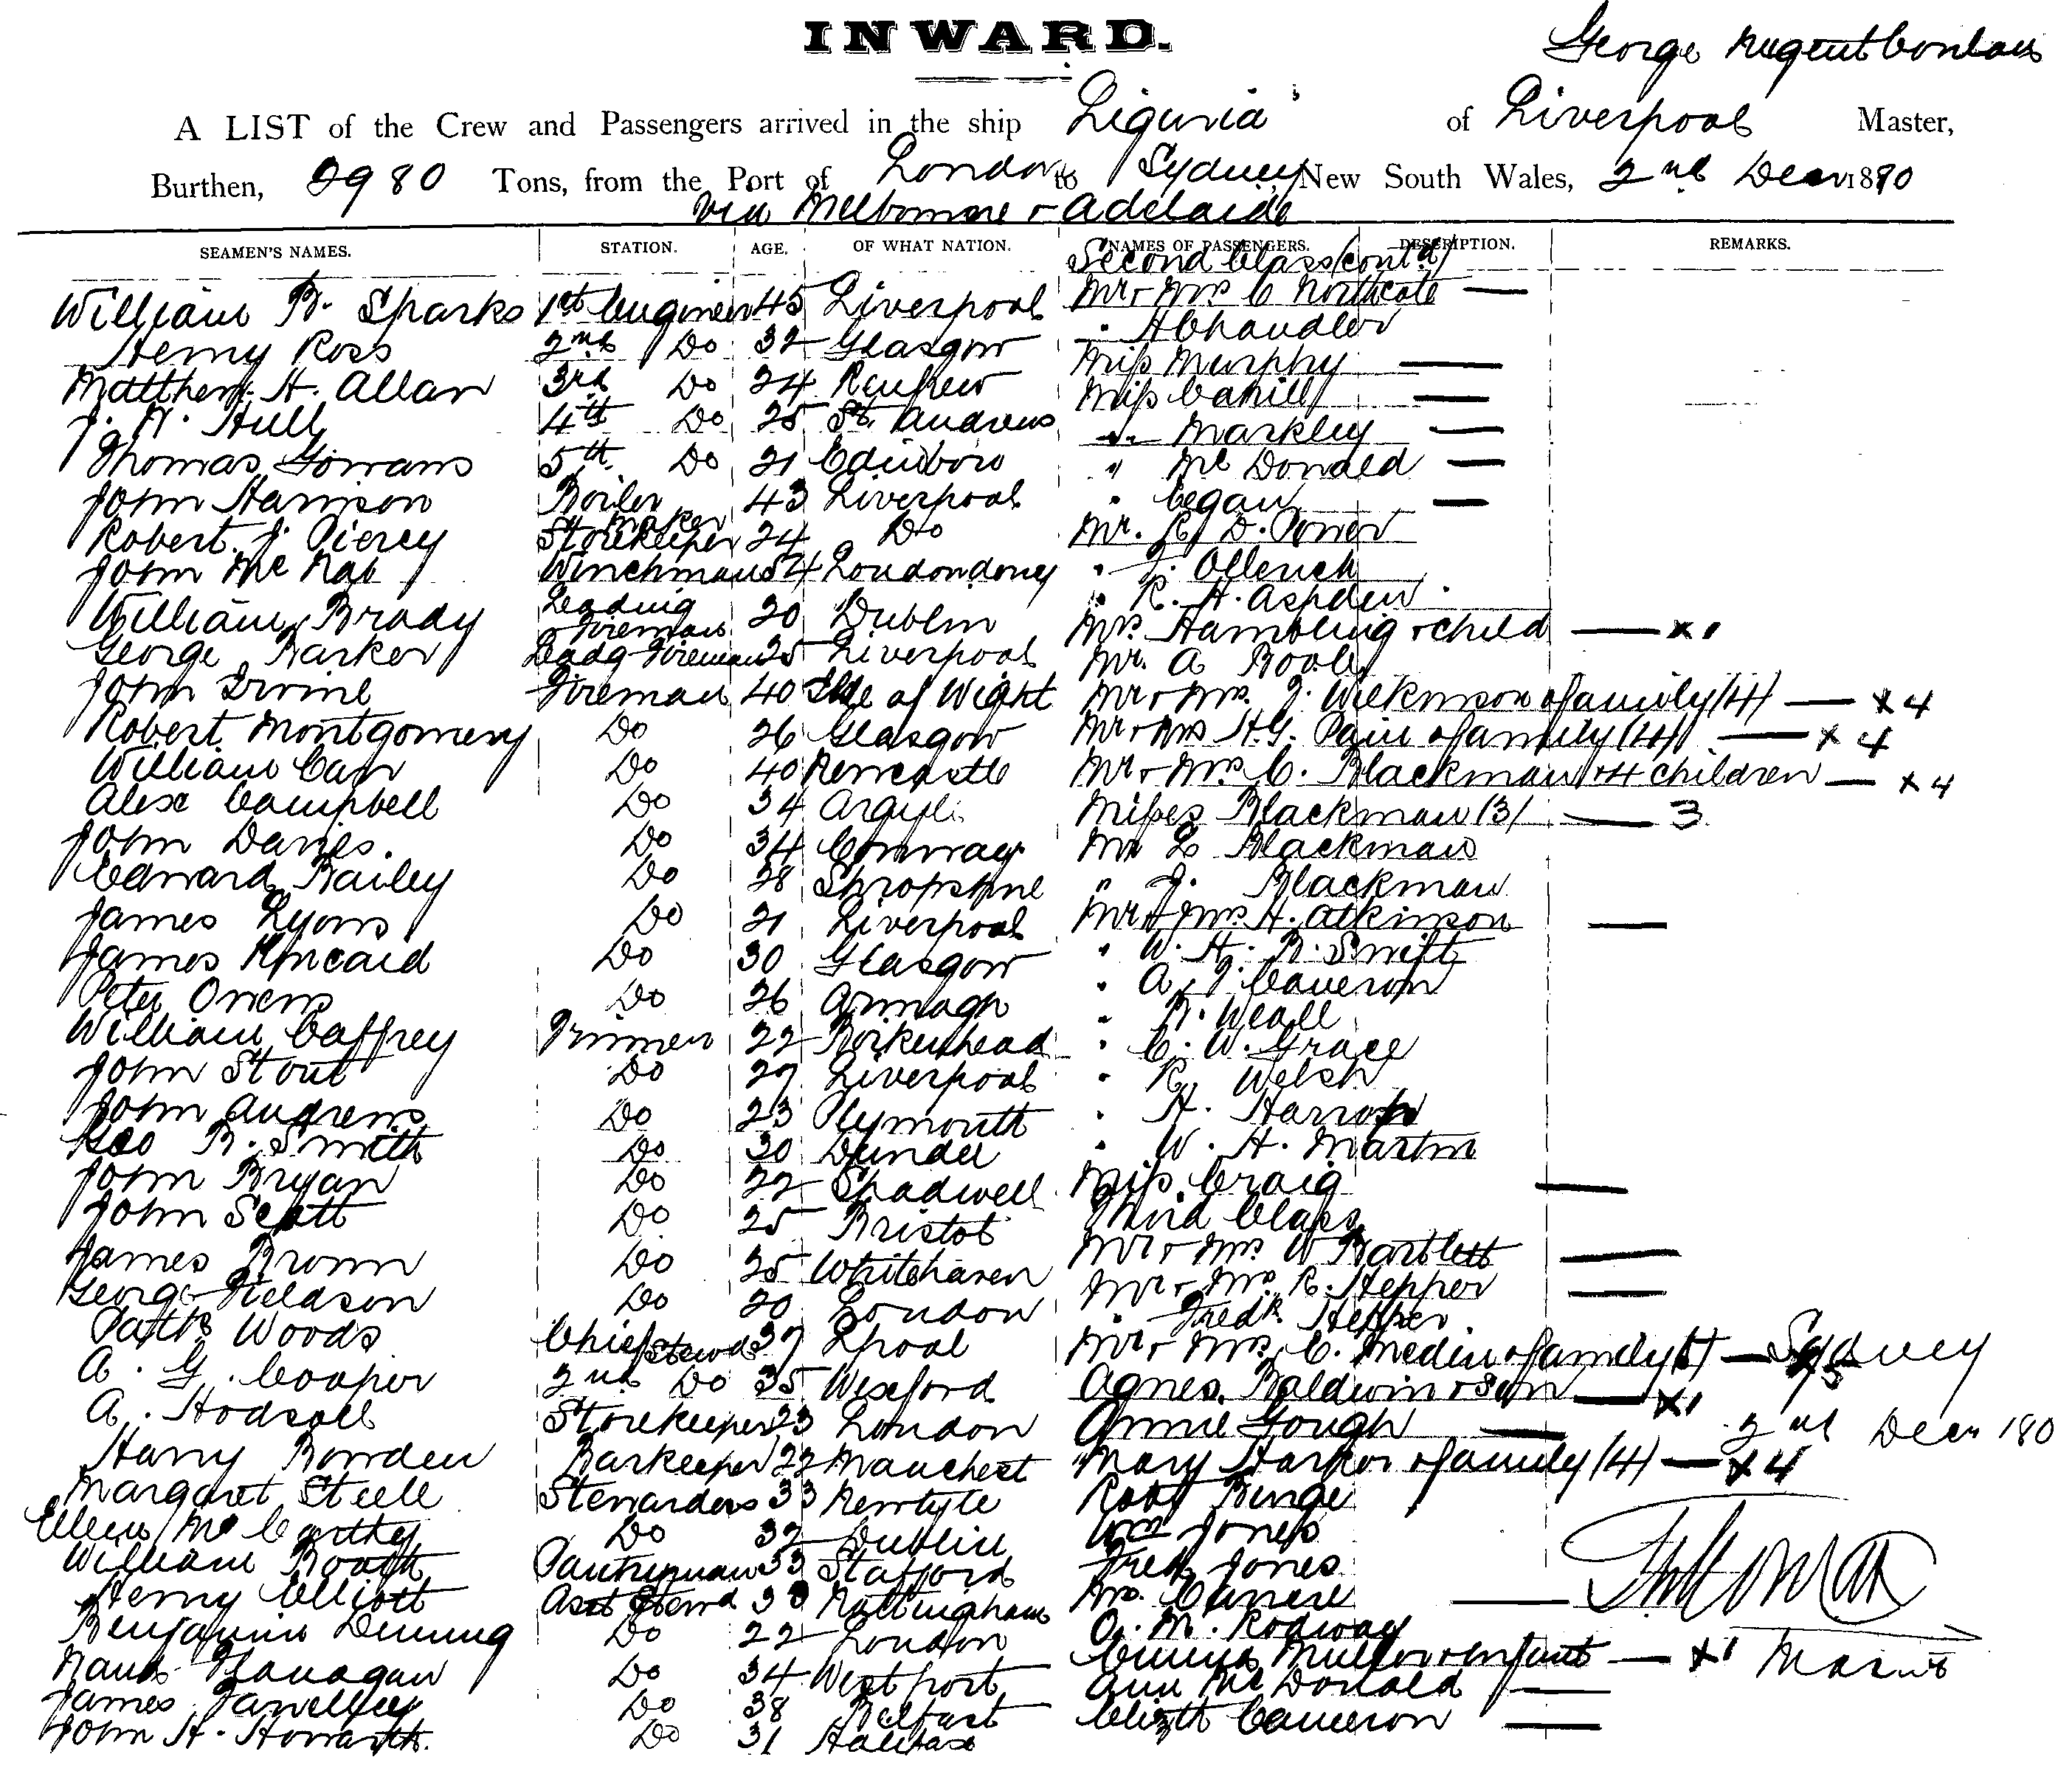 INWARD.
George Nugent Conlan
A LIST of the Crew and Passengers arrived in the ship Liguria of Liverpool Master,
Burthen, 2980 Tons, from the Port of London to Sydney, New South Wales, 2nd Decr 1880
via Melbourne & Adelaide
SEAMEN'S NAMES. STATION. AGE. OF WHAT NATION. NAMES OF PASSENGERS. DESCRIPTION. REMARKS.
Second Class (cont'd)
William B. Sparks 1st Engineer 45 Liverpool Mr & Mrs C Northcote —
Henry Ross 2nd Do 32 Glasgow " A Chandler
Matthew H. Allan 3rd Do 24 Renfrew Miss Murphy —
J. Hull 4th Do 25 St. Andrews Miss Cahill —
Thomas Gowans 5th Do 21 Edinboro " Markley —
John Harrison Boiler Maker 43 Liverpool " Mc Donald —
Robert J. Piercy Storekeeper 24 Do " Cegan —
John Mc Nab Winchman 54 Londonderry Mr. R. D. Power
William Brady Leading Fireman 20 Dublin " J. Ollerich
George Barker Leadg Fireman 25 Liverpool " R. H. Aspden
Mrs Hambling & child — x1
John Irvine Fireman 40 Isle of Wight Mr. A Boole
Robert Montgomery Do 26 Glasgow Mr & Mrs J. Wilkinson & family (4) — x4
William Carr Do 40 Newcastle Mr & Mrs H.G. Pain & family (4) — x4
Alex Campbell Do 34 Argyle Mr & Mrs C. Blackman & 4 children — x4
John Davies. Do 34 Conway Misses Blackman (3) — 3
Edward Bailey Do 28 Shropshire Mr L Blackman
James Lyons Do 21 Liverpool " J. Blackman
James Kincaid Do 30 Glasgow Mr & Mrs H. Atkinson —
Peter Owens Do 26 Armagh " W. H. B. Swift
William Caffrey Trimmer 22 Birkenhead " A. J. Cameron
John Stout Do 27 Liverpool " B. Weall
John Andrews Do 23 Plymouth " C. W. Grace
Geo B. Smith Do 30 Dundee " R. Welsh
John Bryan Do 22 Shadwell " H. Harrop
John Scott Do 25 Bristol " W. H. Martin
James Brown Do 25 Whitehaven Miss Craig —
George Fieldson Do 20 London Third Class
Patk Woods Chief Stewd 37 Lpool Mr & Mrs W Bartlett —
A. G. Cooper 2nd Do 35 Wexford Mr & Mrs R. Hepper —
A. Hodsoll Storekeeper 23 London " Fredk Hepper
Harry Bowden Barkeeper 22 Manchest Mr & Mrs C. Medin & family (5) — Sydney
Margaret Steele Stewardess 33 Newtyle Agnes Baldwin & son — x1
Ellen Mc Carthy Do 32 Dublin Annie Gough — 2nd Decr 1880
William Booth Pantryman 33 Stafford Mary Harker & family (4) — x4
Henry Elliott Asst Stewd 38 Nottingham Robt Binge
Benjamin Deming Do 22 London Wm Jones
Flanagan Do 34 Westport Fred Jones
James Farrelly Do 38 Belfast Mrs —
John H. Howarth. Do 31 Halifax O. M. Rodway
Emma Muller & Infant — x1 Master
Ann Mc Donald —
Elizth Cameron —